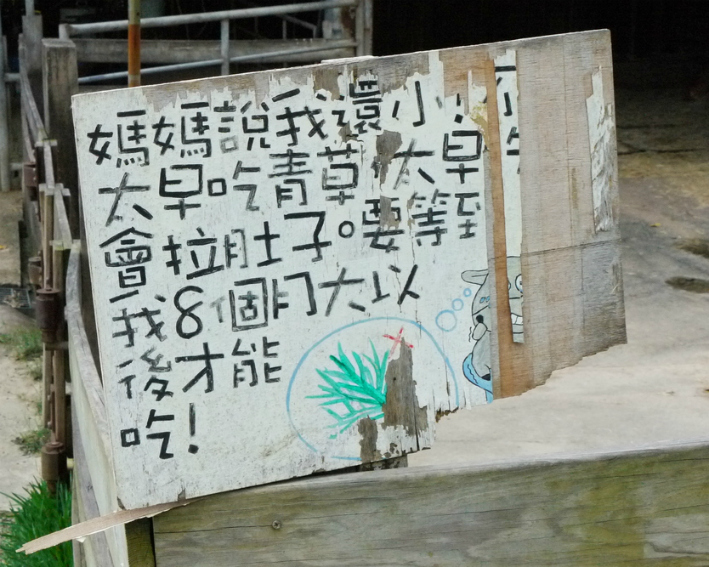 媽媽說我還小！不
太早吃青草 太早
會拉肚子。要等至
我8個月大以
後才能
吃！